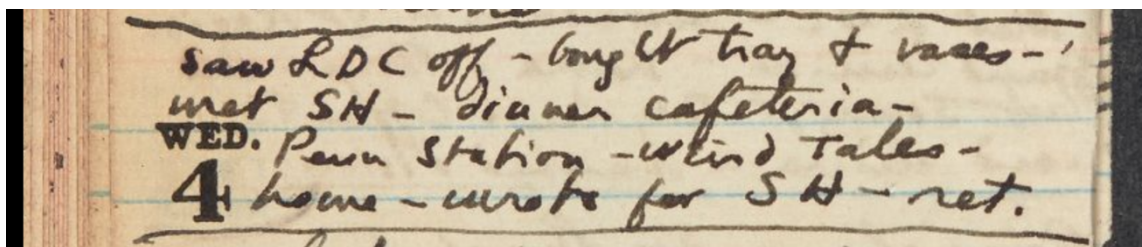 saw LDC off - bought tray & vases -
met SH - dinner cafeteria -
WED. Penn Station - Weird Tales -
4 home - wrote for SH - ret.